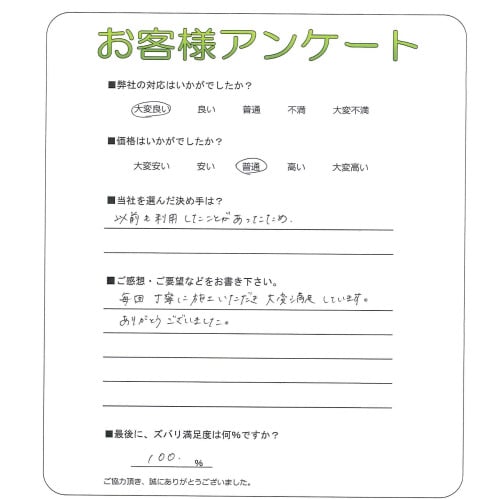 お客様アンケート
■弊社の対応はいかがでしたか？
大変良い 良い 普通 不満 大変不満
■価格はいかがでしたか？
大変安い 安い 普通 高い 大変高い
■当社を選んだ決め手は？
以前も利用したことがあったため.
■ご感想・ご要望などをお書き下さい。
毎回 丁寧に施工いただき 大変満足しています。
ありがとうございました。
■最後に、ズバリ満足度は何%ですか？
100. %
ご協力頂き、誠にありがとうございました。